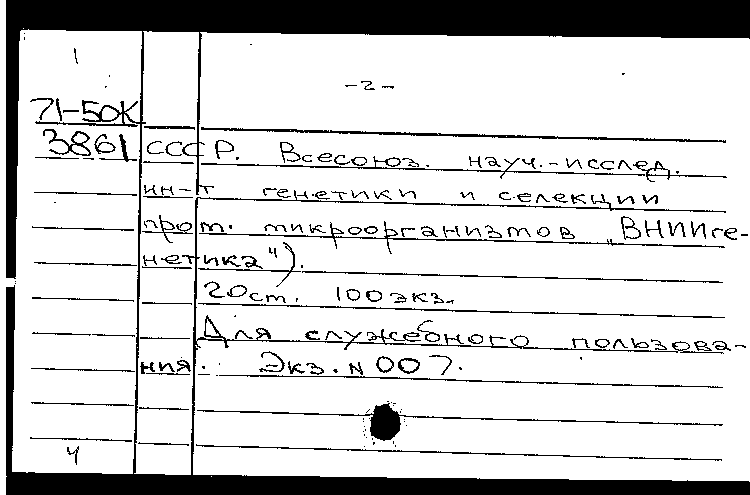 1
-2-
71-50К
3861 СССР. Всесоюз. науч.-исслед.
ин-т генетики и селекции
пром. микроорганизмов „ВНИИге-
нетика").
20 ст. 100 экз.
Для служебного пользова-
ния. Экз. N 007.
4